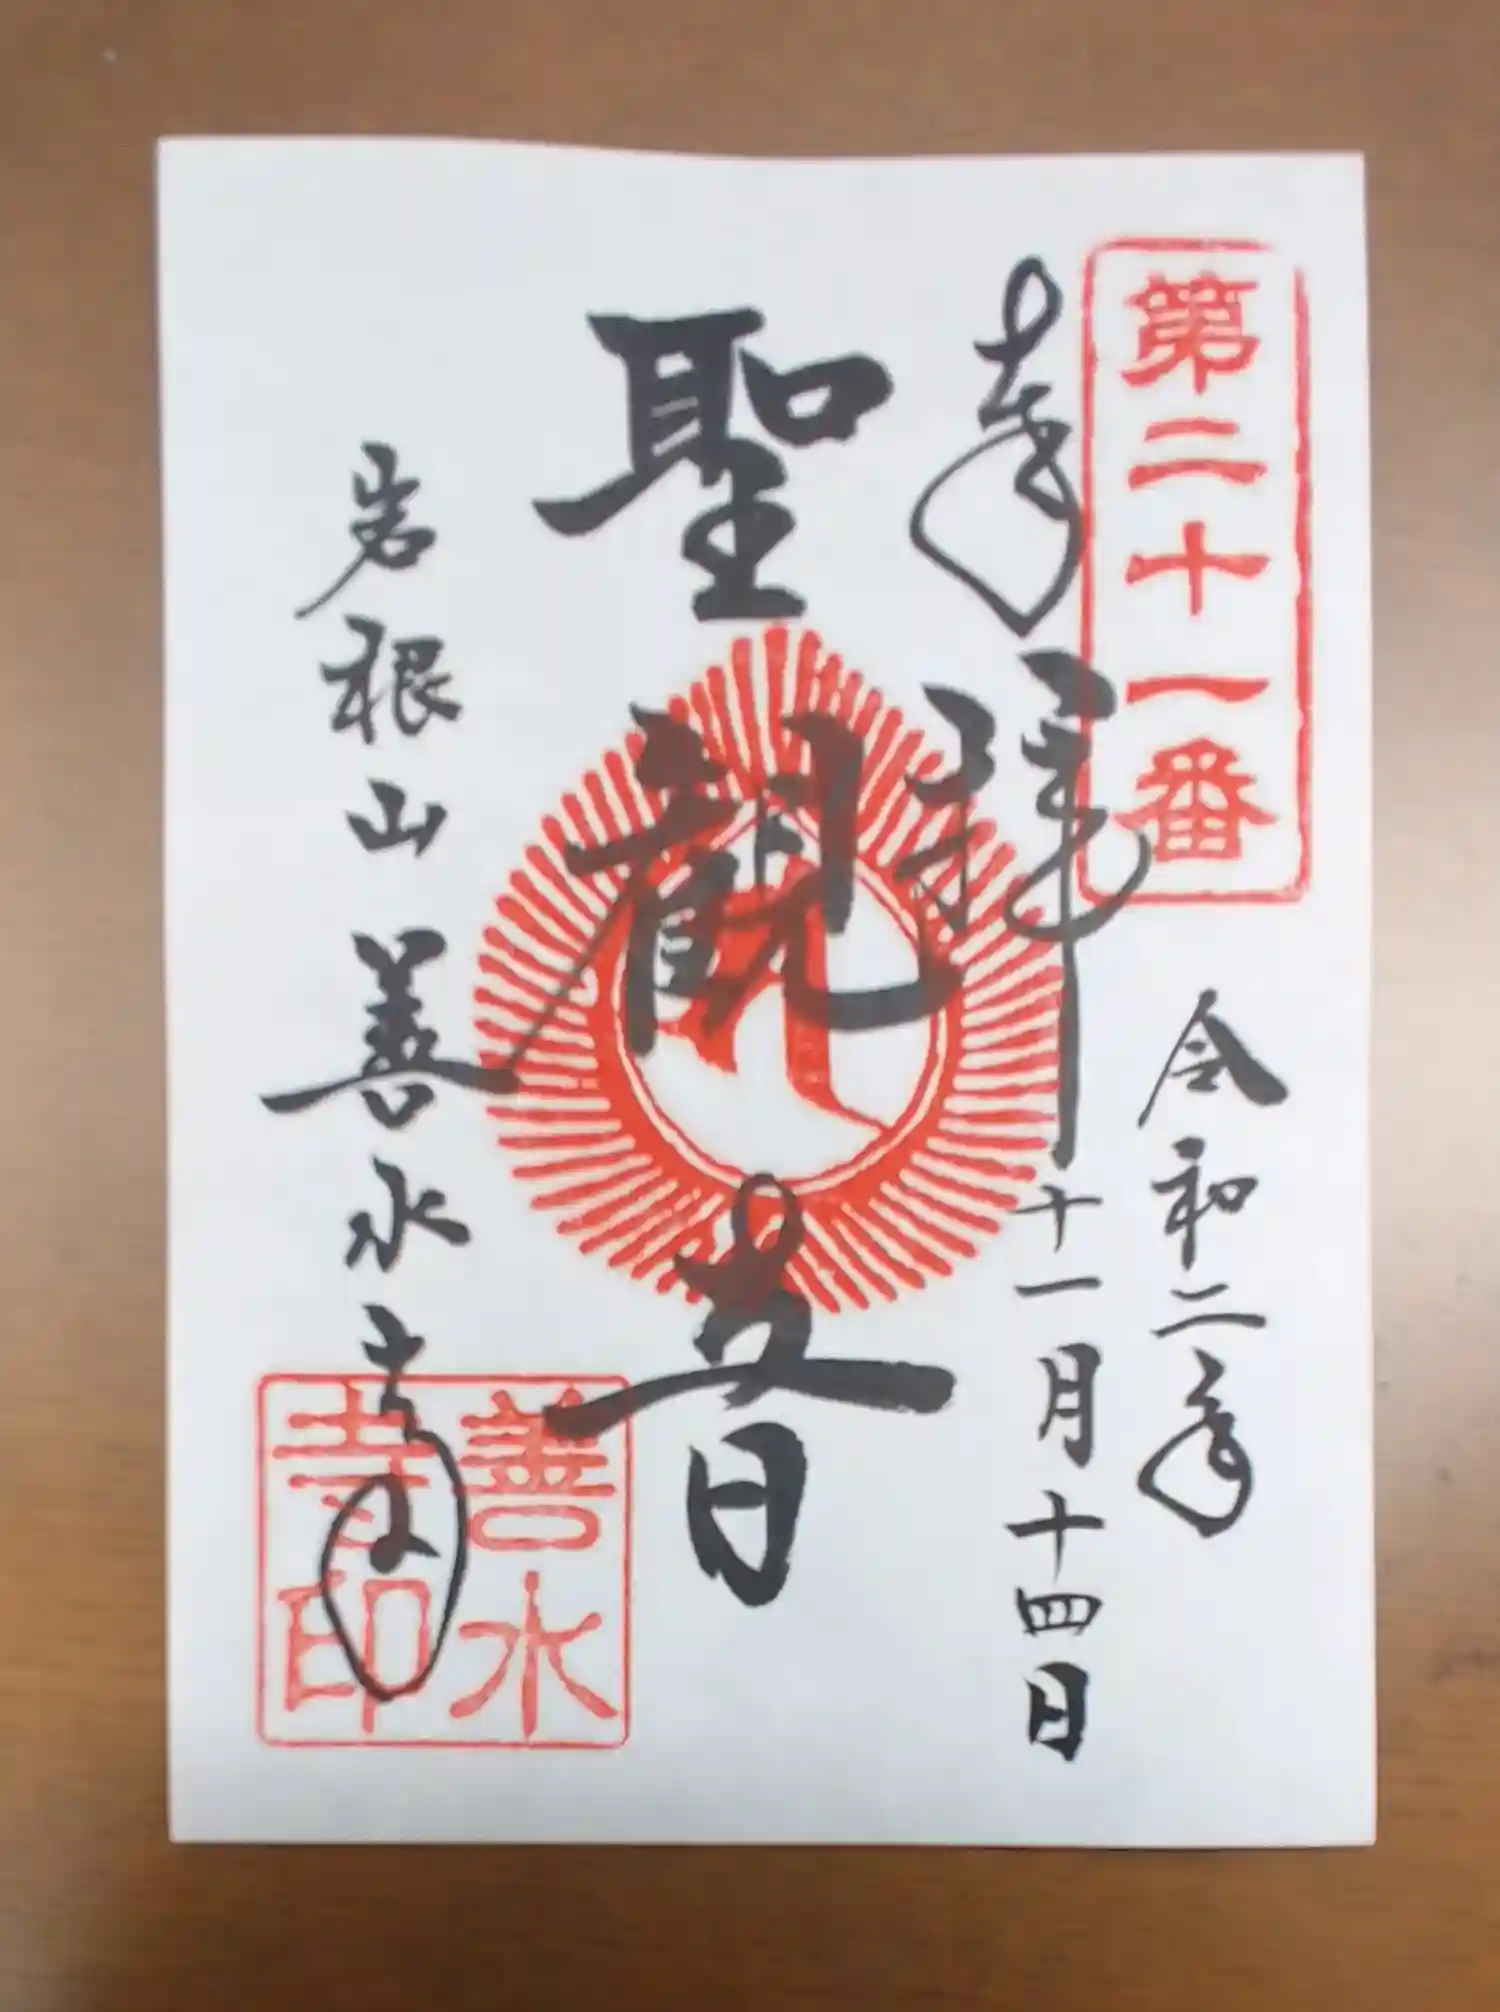 第二十一番
奉拝
令和二年
十一月十四日
聖観音
岩根山善水寺
善水
寺印